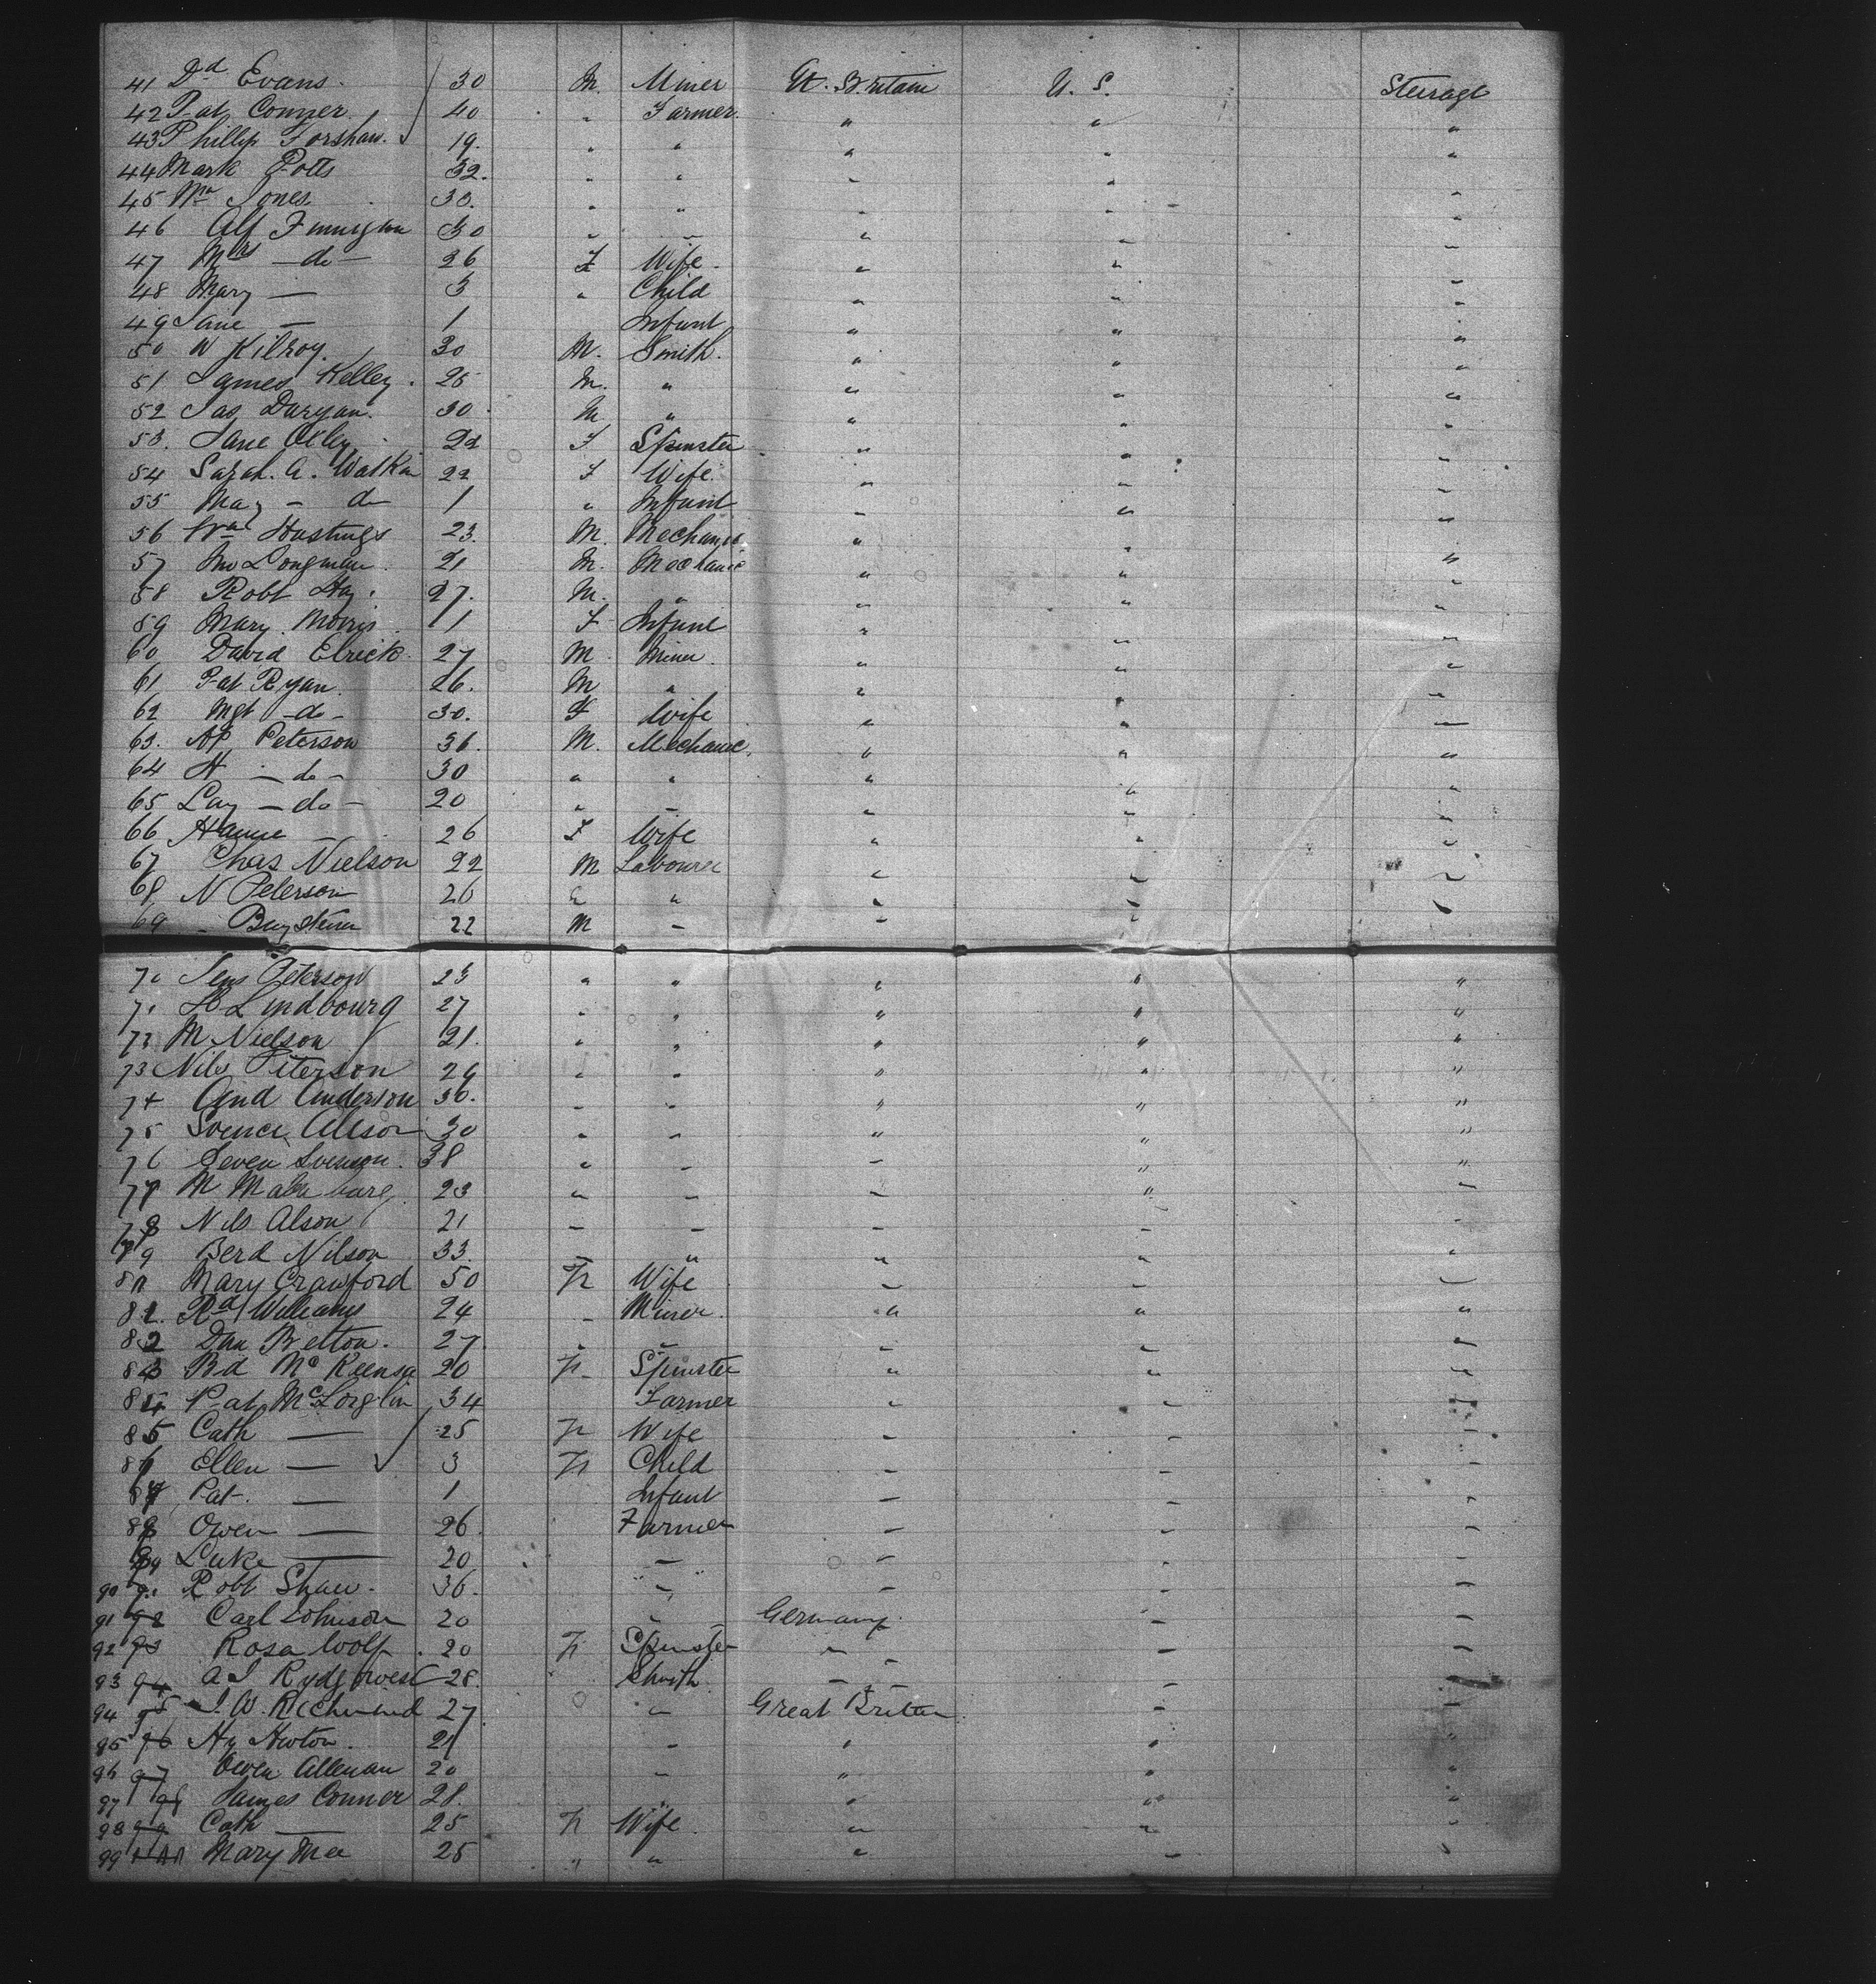 41 Dd Evans. 30 M. Miner Gt. Britain U. S. Steerage
42 Pat Conyer 40 " Farmer. " " "
43 Phillip Forshaw. 19. " " " " "
44 Mark Potts 32. " " " " "
45 Wm Jones 30. " " " " "
46 Alf Finnigan 30 " " " " "
47 Mrs - do - 26 F Wife. " " "
48 Mary — 3 " Child " " "
49 Jane — 1 Infant " " "
50 W Kilroy. 30 M. Smith. " " "
51 James Kelley. 25 M. " " " "
52 Jas Duryan. 30 M " " " "
53. Jane 22 F Spinster " " "
54 Sarah. A. Watkin 22 F Wife. " " "
55 May - do 1 " Infant " " "
56 Wm Hastings 23. M. Mechanic " " "
57 Jno Longman. 21 M. Mechanic " " "
58 Robt Hay. 27. M. " " " "
59 Mary Morris 1 F Infant " " "
60 David Elrick. 27 M Miner. " " "
61 Pat Ryan. 26. M " " " "
62 Mgt - do - 30. F Wife " " "
63. AP Peterson 36. M. Mechanic. " " "
64 H - do - 30 " " " " "
65 Lay - do - 20 " " " " "
66 - 26 F Wife " " "
67 Chas Nielson 22 M Labourer " " "
68 N Peterson 26 " " " " "
69 22 M " " "
70 Jens Peterson 23 " " " " "
71 Lindbourg 27 " " " " "
72 M Nielson 21. " " " " "
73 Nils Peterson 29 " " " " "
74 And Anderson 36. " " " " "
75 30 " " " " "
76 Seven Svenson. 38 " " " " "
77 M 23 " " " " "
78 Nils Alson 21 " " " " "
79 Berd Nilson 33. " " " " "
80 Mary Crawford 50 F Wife " " "
81. Rd Williams 24 " Miner. " " "
82 Dan Belton. 27. " " " " "
83 Bd Mc Keensa 20 F Spinster " " "
84 Pat McLorglin 34 Farmer " " "
85 Cath — 25 F Wife " " "
86 Ellen — 3 F Child " " "
87 Pat. — 1 Infant " " "
88 Owen — 26. Farmer " " "
89 Luke — 20 " " " "
90 91 Robt Shaw. 36. " " " "
91 92 Carl Johnson 20 " Germany. " "
92 93 Rosa Wolf. 20 F Spinster " " "
93 94 A J 28. Smith. " " "
94 95 J. W. Richmond 27 " Great Britain. " "
95 96 Hy Newton. 21 " " " "
96 97 Owen Alleman 20 " " " "
97 98 James Conner 28. " " " "
98 99 Cath — 25 F Wife. " " "
99 100 Mary Mee 25 " " " " "